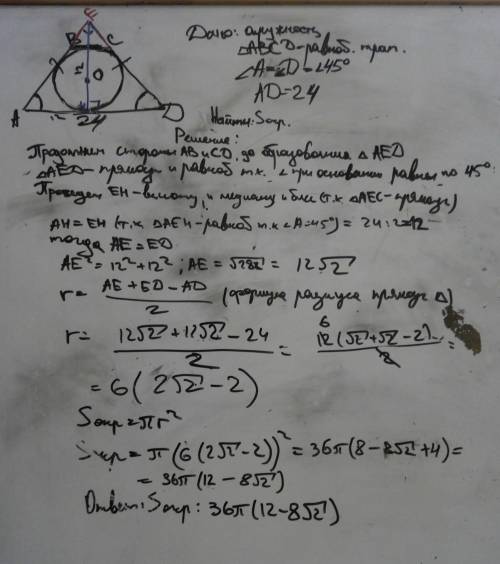 E
B C
r
O
A 24 D
Дано: окружность
ABCD-равноб. трап.
∠A=∠D=45°
AD=24
Найти: Sокр.
Решение:
Продолжим стороны AB и CD, до образования △ AED
△AED- прямоуг и равноб т.к. ∠ при основании равны по 45°.
Проведем EH-высоту, и медиану и бисс (т.к. △AEC-прямоуг)
AH=EH (т.к. △AEH-равноб т.к ∠A=45°) = 24:2=12
тогда AE=ED
AE²=12²+12²; AE=√288 = 12√2
r= AE+ED-AD / 2 (формула радиуса прямоуг △)
r= 12√2+12√2-24 / 2 = 6 12(√2+√2-2) / 2 =
= 6(2√2-2)
Sокр=πr²
Sокр= π(6(2√2-2))² = 36π(8-8√2+4)=
= 36π(12-8√2)
Ответ: Sокр: 36π(12-8√2)